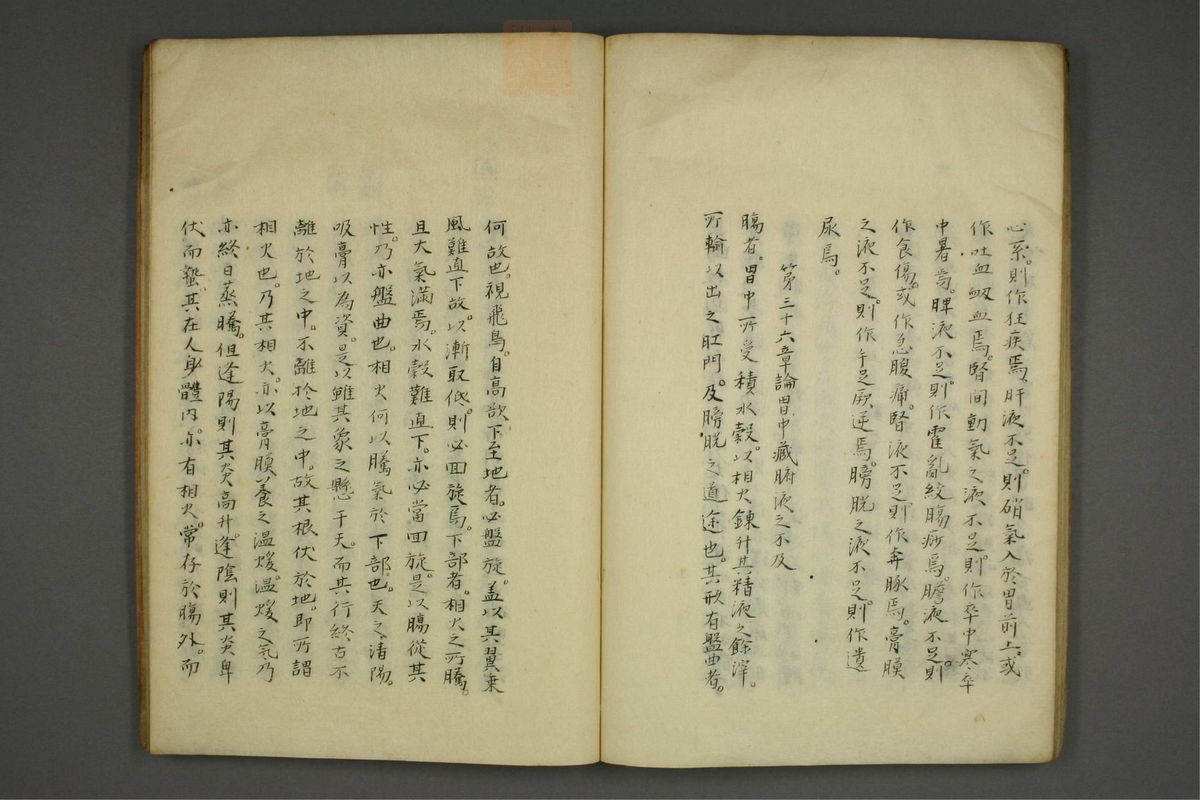 心系。則作狂疾焉。肝液不足。則硝氣入於胃前上。或
作吐血衂血焉。腎間動氣之液不足。則作卒中寒。卒
中暑焉。脾液不足。則作霍亂絞腸痧焉。膽液不足。則
作食傷。或作急腹痛。腎液不足。則作奔豚焉。膏膜
之液不足。則作手足厥逆焉。膀胱之液不足。則作遺
尿焉。
第三十六章論胃中藏腑液之不及
腸者。胃中所受積水穀。以相火鍊升其精液之餘滓。
所輸以出之肛門。及膀胱之道途也。其形有盤曲者。
何故也。視飛鳥。自高欲下至地者。必盤旋。盖以其翼乗
風難直下故。以漸取低。則必回旋焉。下部者。相火之所騰。
且大氣滿焉。水穀難直下。亦必當回旋。是以腸從其
性。乃亦盤曲也。相火何以騰氣於下部也。天之清陽。
吸膏以為資。是以雖其象之懸于天。而其行終古不
離於地之中。不離於地之中。故其根伏於地。即所謂
相火也。乃其相火。亦以膏膜養之温煖。温煖之氣乃
亦終日蒸騰。但逢陽則其炎高升。逢陰則其炎卑
伏而蟄。其在人身體内。亦有相火。常存於腸外。而